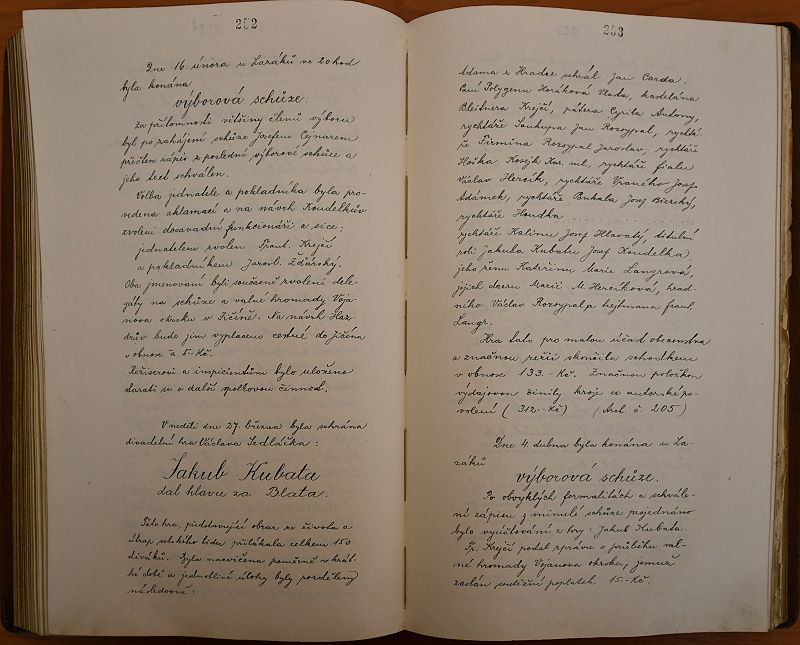 252
Dne 16. února u Lazáků ve 20 hod
byla konána
výborová schůze.
Za přítomnosti většiny členů výboru
byl po zahájení schůze Josefem Cejnarem
přečten zápis z poslední výborové schůze a
jeho text schválen.
Volba jednatele a pokladníka byla pro-
vedena aklamací a na návrh Koudelkův
zvoleni dosavadní funkcionáři a sice:
jednatelem zvolen Frant. Krejčí
a pokladníkem Jarosl. Žďárský.
Oba jmenovaní byli současně zvoleni dele-
gáty na schůze a valné hromady Voja-
nova okrsku v Jičíně. Na návrh Haz-
drův bude jim vyplaceno cestné do Jičína
v obnose à 5.-Kč.
Režiserovi a inspicientům bylo uloženo
starati se o další spolkovou činnost.
V neděli dne 27. března byla sehrána
divadelní hra Václava Sedláčka:
Jakub Kubata
dal hlavu za Blata.
Tato hra, představující obraz ze života a
útrap selského lidu přilákala celkem 150
diváků. Byla nacvičena poměrně v krát-
ké době a jednotlivé úlohy byly rozděleny
následovně:
253
Adama z Hradce sehrál Jan Čarda.
Paní Polyxenu Horáková Vlasta, kastelána
Bleitnera Krejčí, pátera Cyrila Antony,
rychtáře Soukupa Jan Rozsypal, rychtá-
ře Firmina Rozsypal Jaroslav, rychtáře
Hoška Kosejk ml., rychtáře Fialu
Václav Hercík, rychtáře Vraného Josef
Adámek, rychtáře Pukala Josef Bierský,
rychtáře Houdka . . . . . . . . . .
rychtáře Kalinu Josef Hlavatý, titulní
roli Jakuba Kubatu Josef Koudelka
jeho ženu Kateřinu Marie Langrová,
jejich dceru Marii M. Hercíková, hrad-
ního Václav Rozsypal a hejtmana frant.
Langr.
Hra tato pro malou účast obecenstva
a značnou režii skončila schodkem
v obnose 133.-Kč. Značnou položkou
výdajovou činily kroje a autorské po-
volení (312.-Kč) (Arch. č. 205)
Dne 4. dubna byla konána u La-
záků
výborová schůze.
Po obvyklých formalitách a schvále-
ní zápisu z minulé schůze projednáno
bylo vyúčtování z hry: Jakub Kubata.
Tp. Krejčí podal zprávu o průběhu val-
né hromady Vojanova okrsku, jemuž
zaslán soutěžní poplatek 15.-Kč.